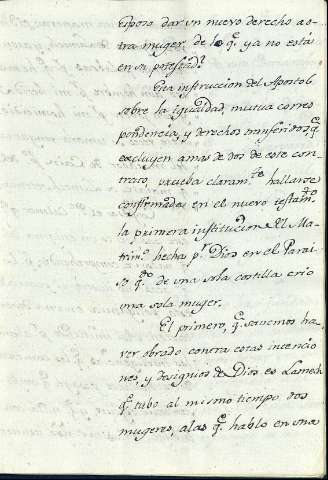 Esposo dar un nuevo derecho a o-
tra muger, de lo q.e ya no está
en su potestad?
Esta instruccion del Apostol
sobre la igualdad, mutua corres
pondencia, y derechos transferidos, q.e
excluyen a mas de dos de este con-
trato, prueba claram.te hallarse
confirmada en el nuevo testam.to
la primera institucion del Ma-
trim.o hecha p.r Dios en el Parai-
so q.do de una sola costilla crió
una sola muger.
El primero, q.e savemos ha-
ver obrado contra estas intencio
nes, y designios de Dios es Lamech
q.e tubo al mismo tiempo dos
mugeres, a las q.e hablo en una